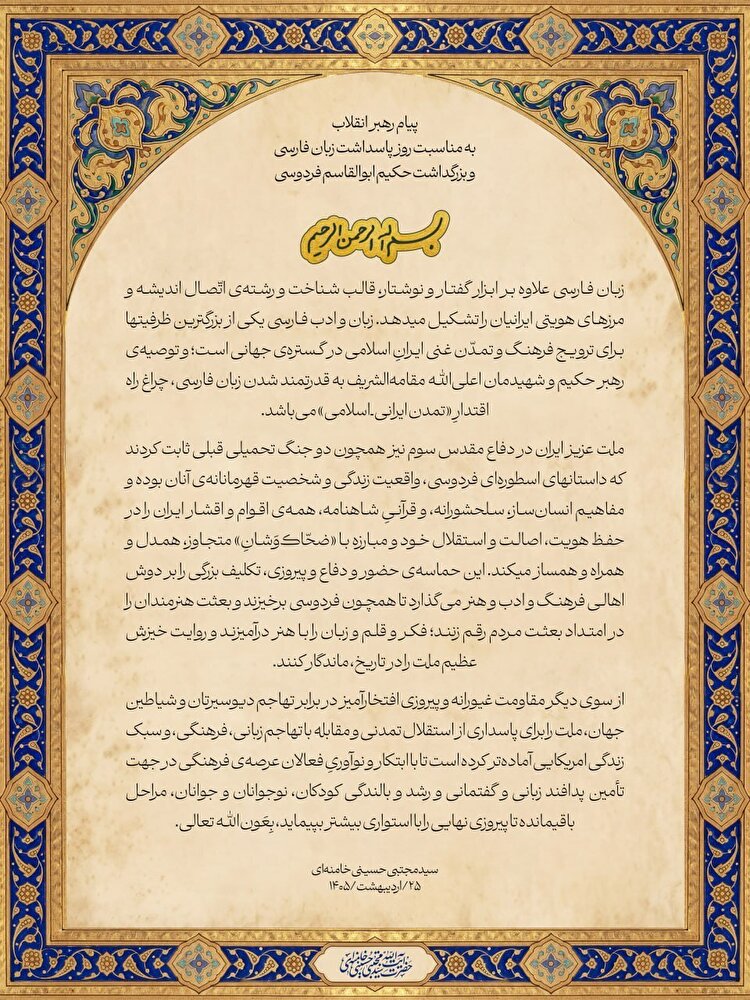 پیام رهبر انقلاب
به مناسبت روز پاسداشت زبان فارسی
و بزرگداشت حکیم ابوالقاسم فردوسی
بسم الله الرحمن الرحیم
زبان فارسی علاوه بر ابزار گفتار و نوشتار، قالب شناخت و رشته‌ی اتّصال اندیشه و
مرزهای هویتی ایرانیان را تشکیل میدهد. زبان و ادب فارسی یکی از بزرگترین ظرفیتها
برای ترویج فرهنگ و تمدّن غنی ایرانِ اسلامی در گستره‌ی جهانی است؛ و توصیه‌ی
رهبر حکیم و شهیدمان اعلی‌الله مقامه‌الشریف به قدرتمند شدن زبان فارسی، چراغ راه
اقتدارِ «تمدن ایرانی-اسلامی» می‌باشد.
ملت عزیز ایران در دفاع مقدس سوم نیز همچون دو جنگ تحمیلی قبلی ثابت کردند
که داستانهای اسطوره‌ای فردوسی، واقعیت زندگی و شخصیت قهرمانانه‌ی آنان بوده و
مفاهیم انسان‌ساز، سلحشورانه، و قرآنیِ شاهنامه، همه‌ی اقوام و اقشار ایران را در
حفظ هویت، اصالت و استقلال خود و مبارزه با «ضحّاک‌وَشانِ» متجاوز، همدل و
همراه و همساز میکند. این حماسه‌ی حضور و دفاع و پیروزی، تکلیف بزرگی را بر دوش
اهالی فرهنگ و ادب و هنر می‌گذارد تا همچون فردوسی برخیزند و بعثت هنرمندان را
در امتداد بعثت مردم رقم زنند؛ فکر و قلم و زبان را با هنر درآمیزند و روایت خیزش
عظیم ملت را در تاریخ، ماندگار کنند.
از سوی دیگر مقاومت غیورانه و پیروزی افتخارآمیز در برابر تهاجم دیوسیرتان و شیاطین
جهان، ملت را برای پاسداری از استقلال تمدنی و مقابله با تهاجم زبانی، فرهنگی، و سبک
زندگی امریکایی آماده‌تر کرده است تا با ابتکار و نوآوریِ فعالان عرصه‌ی فرهنگی در جهت
تأمین پدافند زبانی و گفتمانی و رشد و بالندگی کودکان، نوجوانان و جوانان، مراحل
باقیمانده تا پیروزی نهایی را با استواری بیشتر بپیماید، بِعَون‌الله تعالی.
سیدمجتبی حسینی خامنه‌ای
۲۵/اردیبهشت/۱۴۰۵